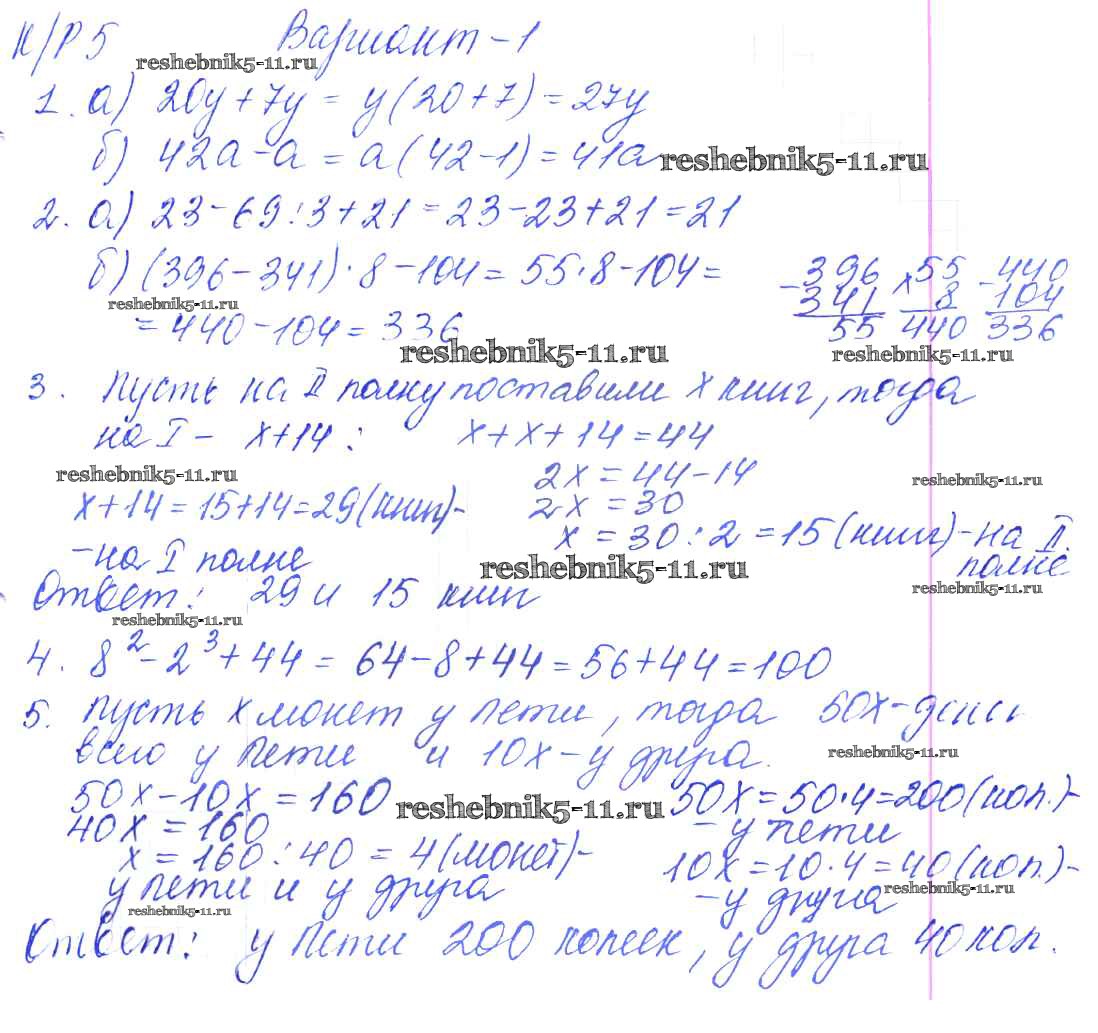 К/Р 5 Вариант-1
reshebnik5-11.ru
1. а) 20y + 7y = y(20+7) = 27y
б) 42a - a = a(42-1) = 41a
reshebnik5-11.ru
2. а) 23 - 69:3 + 21 = 23 - 23 + 21 = 21
б) (396 - 341) · 8 - 104 = 55 · 8 - 104 =
reshebnik5-11.ru
= 440 - 104 = 336
- 396 × 55 - 440
341 8 104
55 440 336
reshebnik5-11.ru
reshebnik5-11.ru
3. Пусть на II полку поставили x книг, тогда
на I - x+14; x + x + 14 = 44
reshebnik5-11.ru
2x = 44 - 14
reshebnik5-11.ru
x+14 = 15+14 = 29 (книг)- 2x = 30
-на I полке x = 30 : 2 = 15 (книг) - на II
reshebnik5-11.ru
полке
reshebnik5-11.ru
Ответ: 29 и 15 книг
reshebnik5-11.ru
4. 8² - 2³ + 44 = 64 - 8 + 44 = 56 + 44 = 100
5. Пусть x монет у Пети, тогда 50x - денег
всего у Пети и 10x - у друга.
reshebnik5-11.ru
50x - 10x = 160
reshebnik5-11.ru
40x = 160
x = 160 : 40 = 4 (монет)-
у Пети и у друга
reshebnik5-11.ru
50x = 50·4 = 200 (коп.)-
- у Пети
10x = 10·4 = 40 (коп.)-
reshebnik5-11.ru
- у друга
Ответ: у Пети 200 копеек, у друга 40 коп.